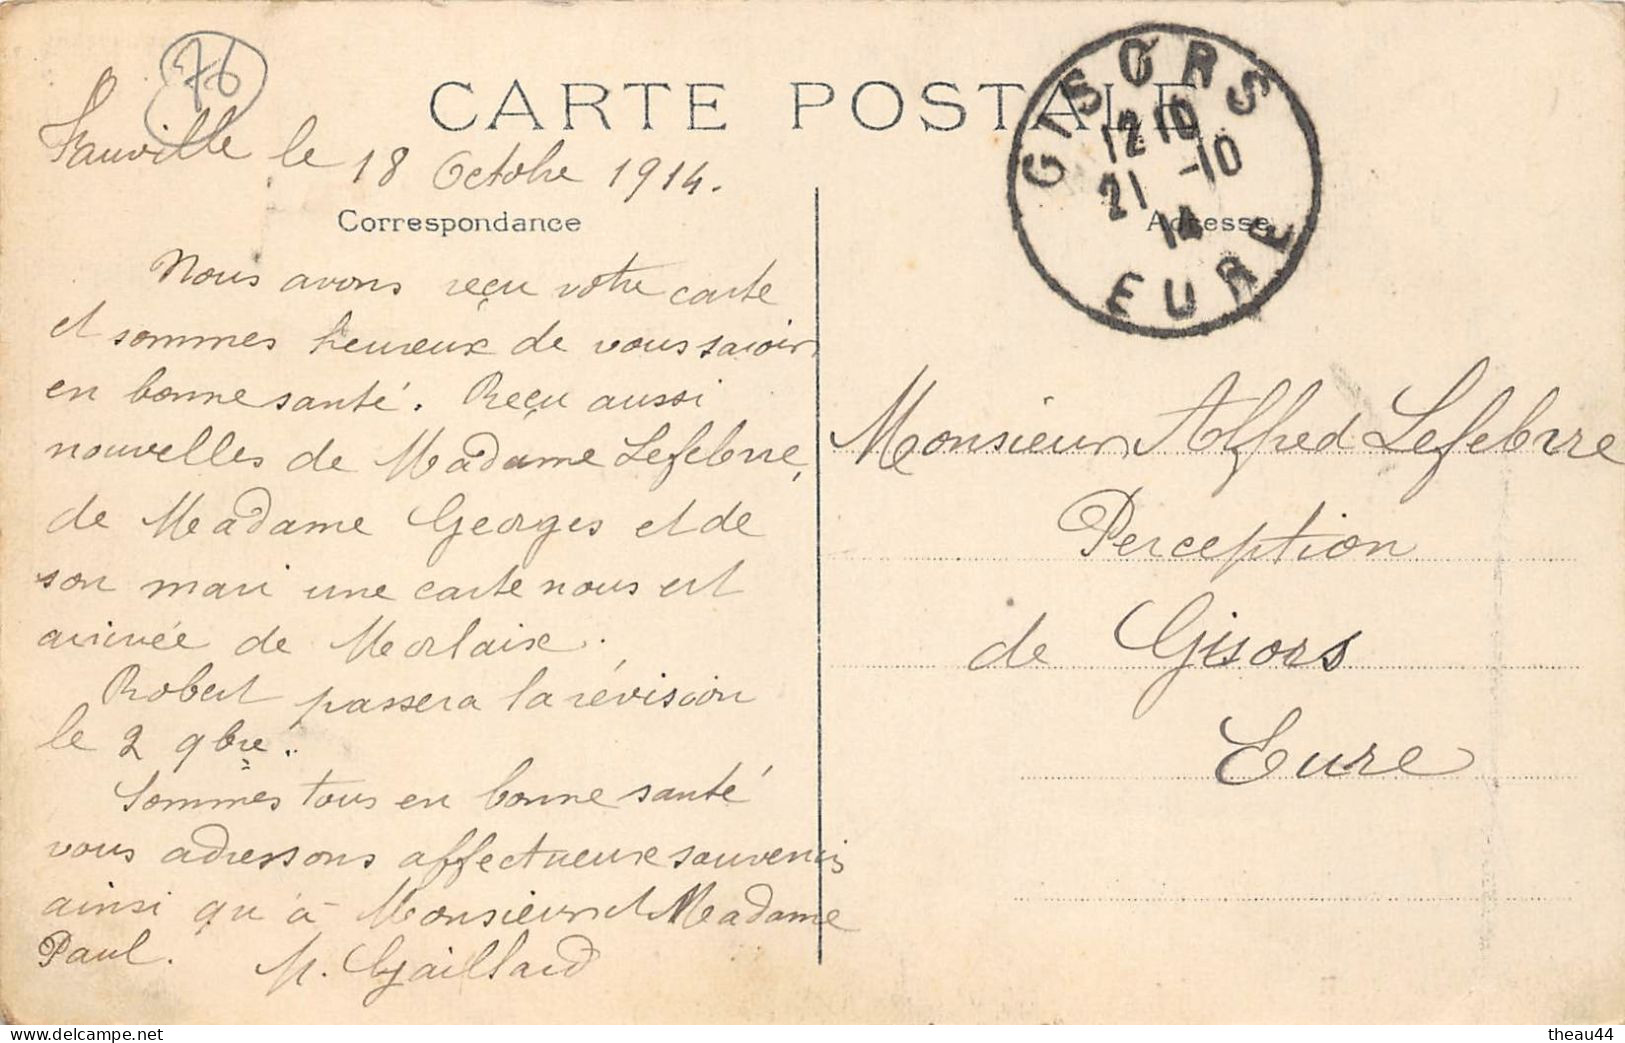 76
CARTE POSTALE
Fauville le 18 Octobre 1914.
Correspondance
Nous avons reçu votre carte
et sommes heureux de vous savoir
en bonne santé. Reçu aussi
nouvelles de Madame Lefebvre,
de Madame Georges et de
son mari une carte nous est
arrivée de Morlaix.
Robert passera la révision
le 2 9bre.
Sommes tous en bonne santé
vous adressons affectueux souvenirs
ainsi qu'à Monsieur et Madame
Paul. M. Gaillard
GISORS
12 10
21 -10
14
EURE
Adresse
Monsieur Alfred Lefebvre
Perception
de Gisors
Eure
www.delcampe.net
theau44